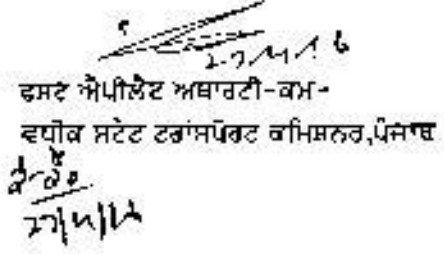 27/4/16
ਫਸਟ ਐਪੀਲੈਟ ਅਥਾਰਟੀ-ਕਮ-
ਵਧੀਕ ਸਟੇਟ ਟਰਾਂਸਪੋਰਟ ਕਮਿਸ਼ਨਰ,ਪੰਜਾਬ